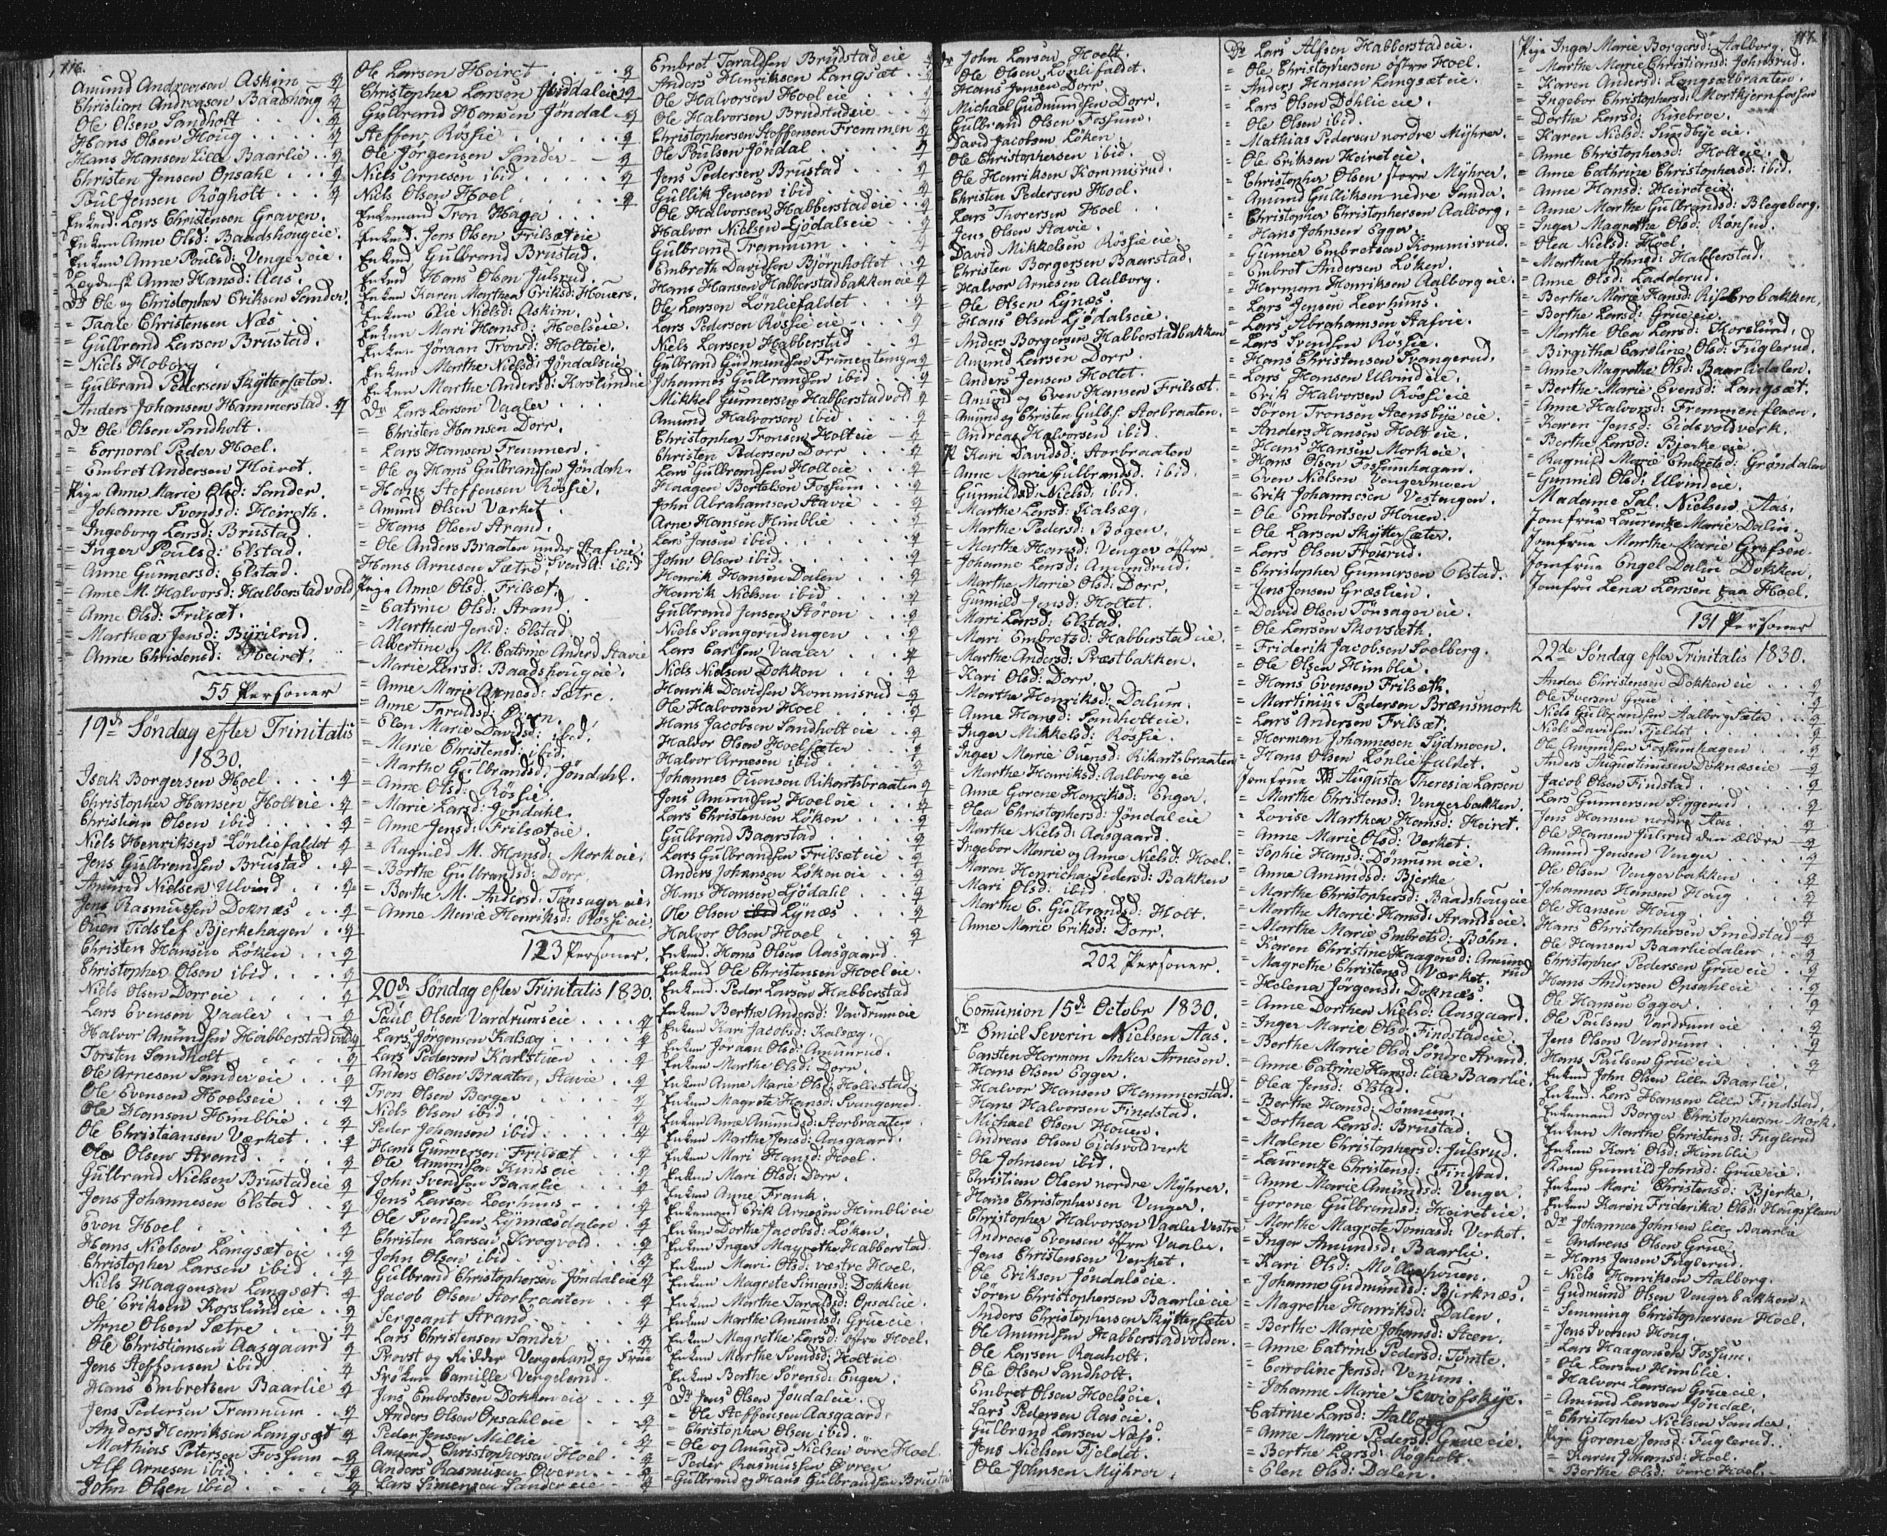 116.
Amund Andreasen Askim - q
Christian Andreasen Baadshoug q
Ole Olsen Sandholt . . q
Hans Olsen Houg . . . q
Hans Hansen Lille Baarlie . . q
Christen Jensen Opsahl . . q
Poul Jensen Rögholt . . q
Enkem̄d. Lars Christensen Graven.
Enken Anne Olsd: Baadshougeie.
Enken Anne Poulsd: Vengereie.
Anne Hansd: Aas.
Dr Ole og Christopher Eriksen Sander.
= Taale Christensen Næs
= Gulbrand Larsen Brustad.
= Niels Hoborg
= Gulbrand Pedersen Skÿttersæter.
Anders Johansen Hammerstad . q
Dr Ole Olsen Sandholt.
= Corporal Peder Hoel.
= Embret Andersen Heiret.
Pige Anne Marie Olsd: Sander.
= Johanne Svendsd: Heireth.
= Ingeborg Larsd: Brustad.
= Inger Poulsd: Elstad.
= Anne Gunnersd: Elstad.
= Anne M. Halvorsd: Halberstadvold
= Anne Olsd: Frilsæt.
= Marthea Jensd: Bÿrilrud.
= Anne Christensd: Heiret.
55 Personer
19de Søndag efter Trinitatis
1830.
Isak Borgersen Hoel . . . . q
Christopher Hansen Holteie . q
Christian Olsen ibid . . . q
Niels Henriksen Lönliefaldet q
Jens Gulbrandsen Brustad . . q
Amund Nielsen Ulvind . . . q
Jens Rasmussen Doknæs . . . q
Ouen Tidslef Bjerkehagen . q
Christen Hansen Löken . . q
Christopher Olsen ibid . . q
Niels Olsen Dorreie . . . q
Lars Evensen Vaaler . . . q
Halvor Amundsen Habberstadvold q
Torsten Sandholt . . . q
Ole Arnesen Sandereie . . q
Ole Evensen Hoelseie . . . q
Ole Hansen Himblie . . . q
Ole Christiansen Værket . . q
Ole Olsen Strand . . . q
Gulbrand Nielsen Brustadeie q
Jens Johannesen Elstad . . q
Even Hoel . . . . q
Hans Nielsen Langsæteie . . q
Christopher Larsen ibid . . q
Niels Haagensen Langsæt . q
Ole Eriksen Korslundeie . . q
Arne Olsen Sætre . . . q
Ole Christiansen Aasgaard q
Jens Steffensen ibid . . q
Hans Embretsen Baarlie . q
Jens Pedersen Tremmum . . q
Anders Henriksen Langsæt q
Mathias Petersen Fossum - q
Alf Arnesen ibid . . . q
John Olsen ibid . . . q
Ole Larsen Heiret . . . q
Christopher Larsen Jöndaleie q
Gulbrand Hansen Jöndal - q
Steffen Rössie . . . q
Ole Jörgensen Sander - - q
Niels Arnesen ibid . . . q
Niels Olsen Hoel . . . q
Enkemand Tron Hager . . .
Enkem̄d. Jens Olsen Frilsæteie
Enkem̄d Gulbrand Brustad.
Enkem̄d Hans Olsen Julsrud.
Enken Karen Marthea Eriksd: Houers.
Enken Elie Nielsd: Askim.
Enken Mari Hansd: Hoelseie.
Enken Jöraan Tronsd: Holteie.
Enken Marthe Nielsd: Jöndalseie
Enken Marthe Andersd: Korslundeie
Dr Lars Larsen Vaaler
= Christen Hansen Dorr.
= Lars Hansen Tremmen.
= Ole og Hans Gulbrandsen Jöndah.
= Hans Steffensen Rössie.
= Amund Olsen Værket.
= Hans Olsen Strand.
= Ole Anders Braaten under Stafvie.
Hans Arnesen Sætre, Svend A. ibid
Pige Anne Olsd: Frilsæt.
= Catrine Olsd: Strand.
= Marthea Jensd: Elstad.
= Albertine og M. Catrine Andersd Stavie
= Marie Larsd: Baadshougeie.
= Anne Marie Arnesd: Sætre.
= Anne Taraldsd: Ouren.
= Elen Marie Davidsd: ibid.
= Marie Christensd: ibid.
= Marthe Gulbrandsd: Jöndahl.
= Anne Olsd: Rössie.
= Marie Larsd: Jöndahl.
= Anne Jensd: Frilsæteie.
= Ragnild M. Hansd: Morkeie.
= Berthe Gulbrandsd: Dorr.
= Berthe M. Andersd: Tönsagereie.
= Anne Marie Henriksd: Rössieeie.
123 Personer.
20de Søndag efter Trinitatis 1830.
Paul Olsen Vardrumseie . . . q
Lars Jörgensen Kalsæg . . . q
Lars Pedersen Karlstuen . . q
Anders Olsen Braaten, Stavie . . q
Tron Olsen Berger . . . q
Niels Olsen ibid . . . q
Peder Johansen ibid . . . q
Hans Gunnersen Frilsæt . . q
Ole Amundsen Rundseie . . q
John Svendsen Baarlie . . q
Jens Larsen Leerhuus . . q
Ole Svendsen Lynnæsdalen . q
Christen Larsen Krogvold . . q
John Olsen ibid . . . q
Gulbrand Christophersen Jöndaleie q
Jacob Olsen Storbraaten . . q
Sergeant Strand . . .
Lars Christensen Sander . . q
Provst og Ridder Vergeland og Frue
Frøken Camille Vergeland.
Jens Embretsen Dokkeneie . . q
Anders Olsen Opsahleie . . q
Peder Jensen Mellie . . q
Amund Christophersen Hoel . . q
Anders Rasmusen Ouern . . q
Lars Simensen Sandereie . . q
Embret Taraldsen Brustadeie q
Anders Henriksen Langsæt . q
Ole Halvorsen Hoeleie . . q
Ole Halvorsen Brustadeie . . q
Christophersen Steffensen Fremmen q
Ole Poulsen Jöndal . . . q
Jens Pedersen Brustad . . q
Gullik Jensen ibid . . . q
Ole Halvorsen Habberstadeie . . q
Halvor Nielsen Gjödalseie . q
Gulbrand Tremmum . . q
Embreth Davidsen Björnholtet . . q
Hans Hansen Habberstadbakkeneie q
Ole Larsen Lönliefaldet . . q
Lars Pedersen Rössieeie . . q
Niels Larsen Habberstad . . q
Gulbrand Gudmundsen Frimantengen q
Johannes Gulbrandsen ibid . q
Mikkel Gunnersen Habberstadvold q
Amund Halvorsen ibid . . q
Christopher Tronsen Holteie - q
Christen Pedersen Dorr . . q
Lars Gulbrandsen Holteie . . q
Haagen Bertelsen Fossum . . q
John Abrahamsen Stavie . . q
Arne Hansen Himblie . . q
Lars Jensen ibid . . . q
John Olsen ibid . . . q
Henrik Hansen Dalen . . q
Henrik Nielsen ibid . . q
Gulbrand Jensen Stören . . q
Niels Svangerudengen . . q
Lars Carlsen Vaaler . . q
Niels Nielsen Dokken . . q
Henrik Davidsen Kommisrud - q
Ole Halvorsen Hoel . . q
Hans Jacobsen Sandholteie . q
Halvor Olsen Hoelsæter . . q
Halvor Arnesen ibid . . q
Johannes Ouensen Rikartsbraaten q
Jens Amundsen Hoeleie . . q
Lars Christensen Löken . . q
Gulbrand Baarstad . . q
Lars Gulbrandsen Frilsæteie . q
Anders Johansen Lökeneie . . q
Hans Hansen Gjödahl . . q
Ole Olsen Lÿnæs . . q
Halvor Olsen Hoel . . q
Enkem̄d. Hans Olsen Aasgaard.
Enkem̄d Ole Christensen Hoeleie.
Enkem̄d Peder Larsen Habberstad
Enken Berthe Andersd: Vardrumeie
Enken Kari Jacobsd: Kalsæg.
Enken Jöraan Olsd: Amunrud.
Enken Marthe Olsd: Dorr.
Enken Anne Marie Olsd: Holiestad.
Enken Magrete Hansd: Svangerud
Enken Anne Amundsd: Storbraaten.
Enken Marthe Jensd: Aasgaard.
Enken Mari Hansd: Hoel.
Enken Mari Olsd: Dorr.
Enken Anne Frank.
Enkemand Erik Arnesen Himblieie
Enken Dorthe Jacobsd: Löken.
Enken Inger Magrethe Habberstad.
Enken Mari Olsd: væstre Hoel.
Enken Magrete Simensd: Dokken
Enken Marthe Taraldsd: Opsaleie.
Enken Marthe Amundsd: Grueeie.
Enken Magrethe Larsd: öfre Hoel.
Enken Marthe Svendsd: Holteie
Enken Berthe Sörensd: Enger.
Dr Jens Olsen Jöndaleie.
= Ole Steffensen Aasgaard.
= Christopher Olsen ibid.
= Ole og Amund Nielsen övre Hoel
= Peder Rasmussen Ovren
= Gulbrand og Hans Gulbrandsen Brustad
117.
Dr John Larsen Hoelt.
Ole Olsen Lönlifaldet.
Hans Jensen Dorr
Michael Gudmundsen Dorr.
Gulbrand Olsen Fossum.
David Jacobsen Löken.
Ole Christophersen ibid.
Ole Henriksen Kommisrud.
Christen Pedersen Hoel.
Lars Thoresen Hoel
Jens Olsen Stavie.
David Mikkelsen Rössieeie.
Christen Borgersen Baarstad.
Halvor Arnesen Aalborg.
Ole Olsen Lynæs.
Hans Olsen Gjödalseie.
Anders Borgersen Habberstadbakken
= Amund Larsen Dorr.
= Anders Jensen Holtet.
= Amund og Even Hansen Frilsæt.
= Amund og Christen Gulds. Storbraaten.
= Andreas Halvorsen ibid.
P. Kari Davidsd: Storbraaten
Anne Marie Gulbrandsd. ibid
= Gunnildsd: Nielsd: ibid.
= Marthe Larsd: Kalsæg.
= Marthe Pedersd: Bogen.
= Marthe Hansd: Venger östre.
= Johanne Larsd: Amundrud.
= Marthe Marie Olsd: Dorr.
= Gunild Jensd: Holtet.
= Mari Larsd: Elstad.
= Mari Embretsd: Habberstadeie.
= Marthe Andersd: Præstbakken.
= Kari Olsd: Dorr.
= Marthe Henriksd: Dalum.
= Anne Hansd: Sandholteie.
= Inger Mikkelsd: Rössie.
= Inger Marie Ouensd: Rikartsbraaten
= Marthe Henriksd: Aalborgeie
= Anne Gorene Henriksd: Enger.
= Olea Christophersd: Jöndaleie
= Marthe Nielsd: Aasgaard.
= Ingebor Marie og Anne Nielsd: Hoel.
= Maren Henricha Pedersd: Bakken
= Mari Olsd: ibid
= Marthe C. Gulbrandsd: Holt.
= Anne Marie Eriksd: Dorr.
202 Personer.
Communion 15de October 1830.
Dr Emiel Severin Nielsen Aas.
= Carsten Herman Anker Arnesen.
= Hans Olsen Egger.
= Halvor Hansen Hammerstad.
= Hans Halvorsen Findstad.
= Michael Olsen Houen.
= Andreas Olsen Eidsvoldverk
= Ole Johnsen ibid.
= Christian Olsen nordre Mÿhrer.
= Hans Christophersen Venger.
= Christopher Halvorsen Vaaler Vestre
= Andreas Evensen östre Vaaler.
= Jens Christensen Verket.
= Ole Eriksen Jöndalseie.
= Sören Christophersen Baarlieeie
= Anders Christophersen Skÿttersæter
= Ole Amundsen Habberstadvolden.
= Ole Larsen Raaholt.
= Ole Olsen Sandholt.
= Embret Olsen Hoelseie.
= Lars Pedersen Aaseie.
= Gulbrand Larsen Næss.
= Jens Nielsen Fjeldet.
= Ole Johnsen Mÿhrer.
Dr Lars Alfsen Habberstadeie.
= Ole Christophersen östre Hoel.
= Anders Hansen Langsæteie
= Lars Olsen Döhlieeie.
= Ole Olsen ibid.
= Mathias Pedersen nordre Mÿhrer.
= Ole Eriksen Heireteie.
= Christopher Olsen store Mÿhrer.
= Amund Gulliksen nedre Sander.
= Christopher Christophersen Aalborg.
= Hans Johnsen Egger.
= Gunner Embretsen Kommisrud.
= Embret Andersen Löken.
= Herman Henriksen Aalborgeie.
= Lars Jensen Leerhuus.
= Lars Abrahamsen Stafvie.
= Lars Svendsen Rössie.
= Hans Christensen Svangerud.
= Lars Hansen Ulvindeie.
= Erik Halvorsen Rossieeie
= Sören Tronsen Steensbyeeie.
= Anders Hansen Holteie.
= Hans Hansen Morkeie.
= Hans Olsen Fossumhagan.
= Even Nielsen Vengermoen
= Erik Johannesen Vestengen.
= Ole Embretsen Houen.
= Ole Larsen Skÿttersæter.
= Lars Olsen Frourud.
= Christopher Gunnersen Elstad.
= Jens Jensen Græslien.
= David Olsen Tönsagereie.
= Ole Larsen Skovsæth.
= Friderik Jacobsen Soelberg.
= Ole Olsen Himblie.
= Hans Evensen Frilsæth.
= Martinius Pedersen Brænsmork
= Lars Andersen Frilsæt.
= Herman Johannesen Sÿdmoen.
= Hans Olsen Lönliefaldet.
Jomfrue Augusta Theresia Larsen
= Marthe Christensd: Vengerbakken.
= Lovise Marthea Hansd: Heiret.
= Anne Marie Olsd: Verket.
= Sophie Hansd: Dönnumeie.
= Anne Amundsd: Bjerke
= Marthe Christophersd: Baadshougeie
= Marthe Marie Hansd: Strandseie.
= Marthe Marie Embretsd: Böhn.
= Karen Christine Haagensd: Amundrud
= Magrethe Christensd Værket.
= Helena Jörgensd: Doknæs.
= Anne Dorthea Nielsd: Aasgaard.
= Inger Marie Olsd: Findstadeie.
= Berthe Marie Olsd: Söndre Strand.
= Anne Catrine Hansd: Lille Baarlie.
= Olea Jensd: Elstad.
= Berthe Hansd: Dönnum.
= Dorthea Larsd: Brustad.
= Malene Christophersd: Julsrud.
= Laurentze Christensd: Finstad.
= Anne Marie Amundsd: Venger.
= Gorene Gulbrandsd: Heireteie.
= Marthe Magrete Tomasd: Verket.
= Inger Amundsd: Baarlie.
= Kari Olsd: Möllerhouen.
= Johanne Gudmundsd: Bjerknæs.
= Magrethe Henriksd: Dalen.
= Berthe Marie Johansd: Steen.
= Anne Catrine Pedersd: Tömte.
= Caroline Jensd: Venum.
= Johanne Marie
= Catrine Larsd: Aalborg
= Anne Marie Pedersd: Grueeie.
= Berthe Larsd: Rögholt.
= Elen Olsd: Dalen.
Pige Inger Marie Borgersd: Aalborg.
= Marthe Marie Christiansd: Johnsrud.
= Karen Andersd: Langsætbraaten.
= Ingebor Christophersd: Mortkjernfossen
= Dorthe Larsd: Risebroe.
= Karen Nielsd: Sundbyeeie.
= Anne Christophersd: Holteie.
= Anne Cathrine Christophersd: ibid.
= Anne Hansd: Heireteie.
= Anne Marthe Gulbrandsd: Blegeberg.
= Inger Magrethe Olsd: Rönsen.
= Olea Nielsd: Hoel.
= Marthea Johnsd: Habberstad.
= Anne Olsd: Ladderud.
= Berthe Marie Hansd: Risebrobakken.
= Berthe Larsd: Grueeie.
= Marthe Olea Larsd: Korslund.
= Birgitha Caroline Olsd: Fuglerud.
= Anne Magrethe Olsd: Baarliedalen.
= Berthe Marie Evensd: Langsæt.
= Anne Halvorsd: Fremmenflaen.
= Karen Jensd: Eidsvoldverk.
= Berthe Larsd: Bjerkeeie
= Ragnild Marie Embretsd: Gröndalen
= Gunnild Olsd: Ulvindeie.
Madame Sal. Nielsen Aas.
Jomfrue Laurentze Marie Dalin.
Jomfrue Marthe Marie Grøfsen.
Jomfrue Engel Dalin Dokken.
Jomfru Lena Larsen paa Hoel.
131 Personer
22de Søndag efter Trinitatis 1830.
Anders Christensen Dokkeneie . . q
Ole Iversen Grue . . . q
Niels Gulbrandsen Aalborgsæter . . q
Niels Davidsen Fjeldet . . q
Ole Amundsen Fossumhagen . . q
Anders Augustinusen Doknæseie . q
Jacob Olsen Findstad . . q
Lars Gunnersen Byggerud . . q
Jens Hansen nordre Aas . . q
Ole Hansen Julsrud den ældre - q
Amund Jensen Venger . . q
Ole Olsen Vengerbakken . . q
Johannes Hansen Houg . . q
Ole Hansen Houg . . . q
Hans Christophersen Smedstad - q
Ole Hansen Baarliedalen . . q
Christopher Pedersen Grueeie . . q
Hans Andersen Opsahleie . . q
Ole Hansen Egger . . . q
Ole Paulsen Vardrumeie . . q
Jens Olsen Vardrum . . q
Hans Paulsen Grueeie . . q
Enkem̄d John Olsen Lille Baarlie.
Enkem̄d: Lars Hansen Lille Findstad.
Enkemand Borger Christophersen Mork.
Enken Marthe Christensd: Fuglerud
Enken Kari Olsd: Himblie
Kone Gunnild Johnsd: Grueeie.
Enken Mari Christensd: Bjerke.
Enken Karen Friderika Olsd: Hougsflaen
Dr Johannes Johnsen Lille Baarlie
= Andreas Olsen Grue.
= Hans Jensen Fuglerud.
= Niels Henriksen Aalborg.
= Gudmund Olsen Vengerbakken.
= Simming Christophersen Hoel.
= Jens Iversen Houg.
= Lars Haagensen Fossum.
= Ole Larsen Himblie.
= Halvor Larsen Grueeie.
= Amund Larsen Jöndal.
= Christopher Nielsen Sander.
Pige Gorene Jensd: Fuglerud.
= Karen Johansd: Hoel.
= Berthe Olsd: övre Hoel.